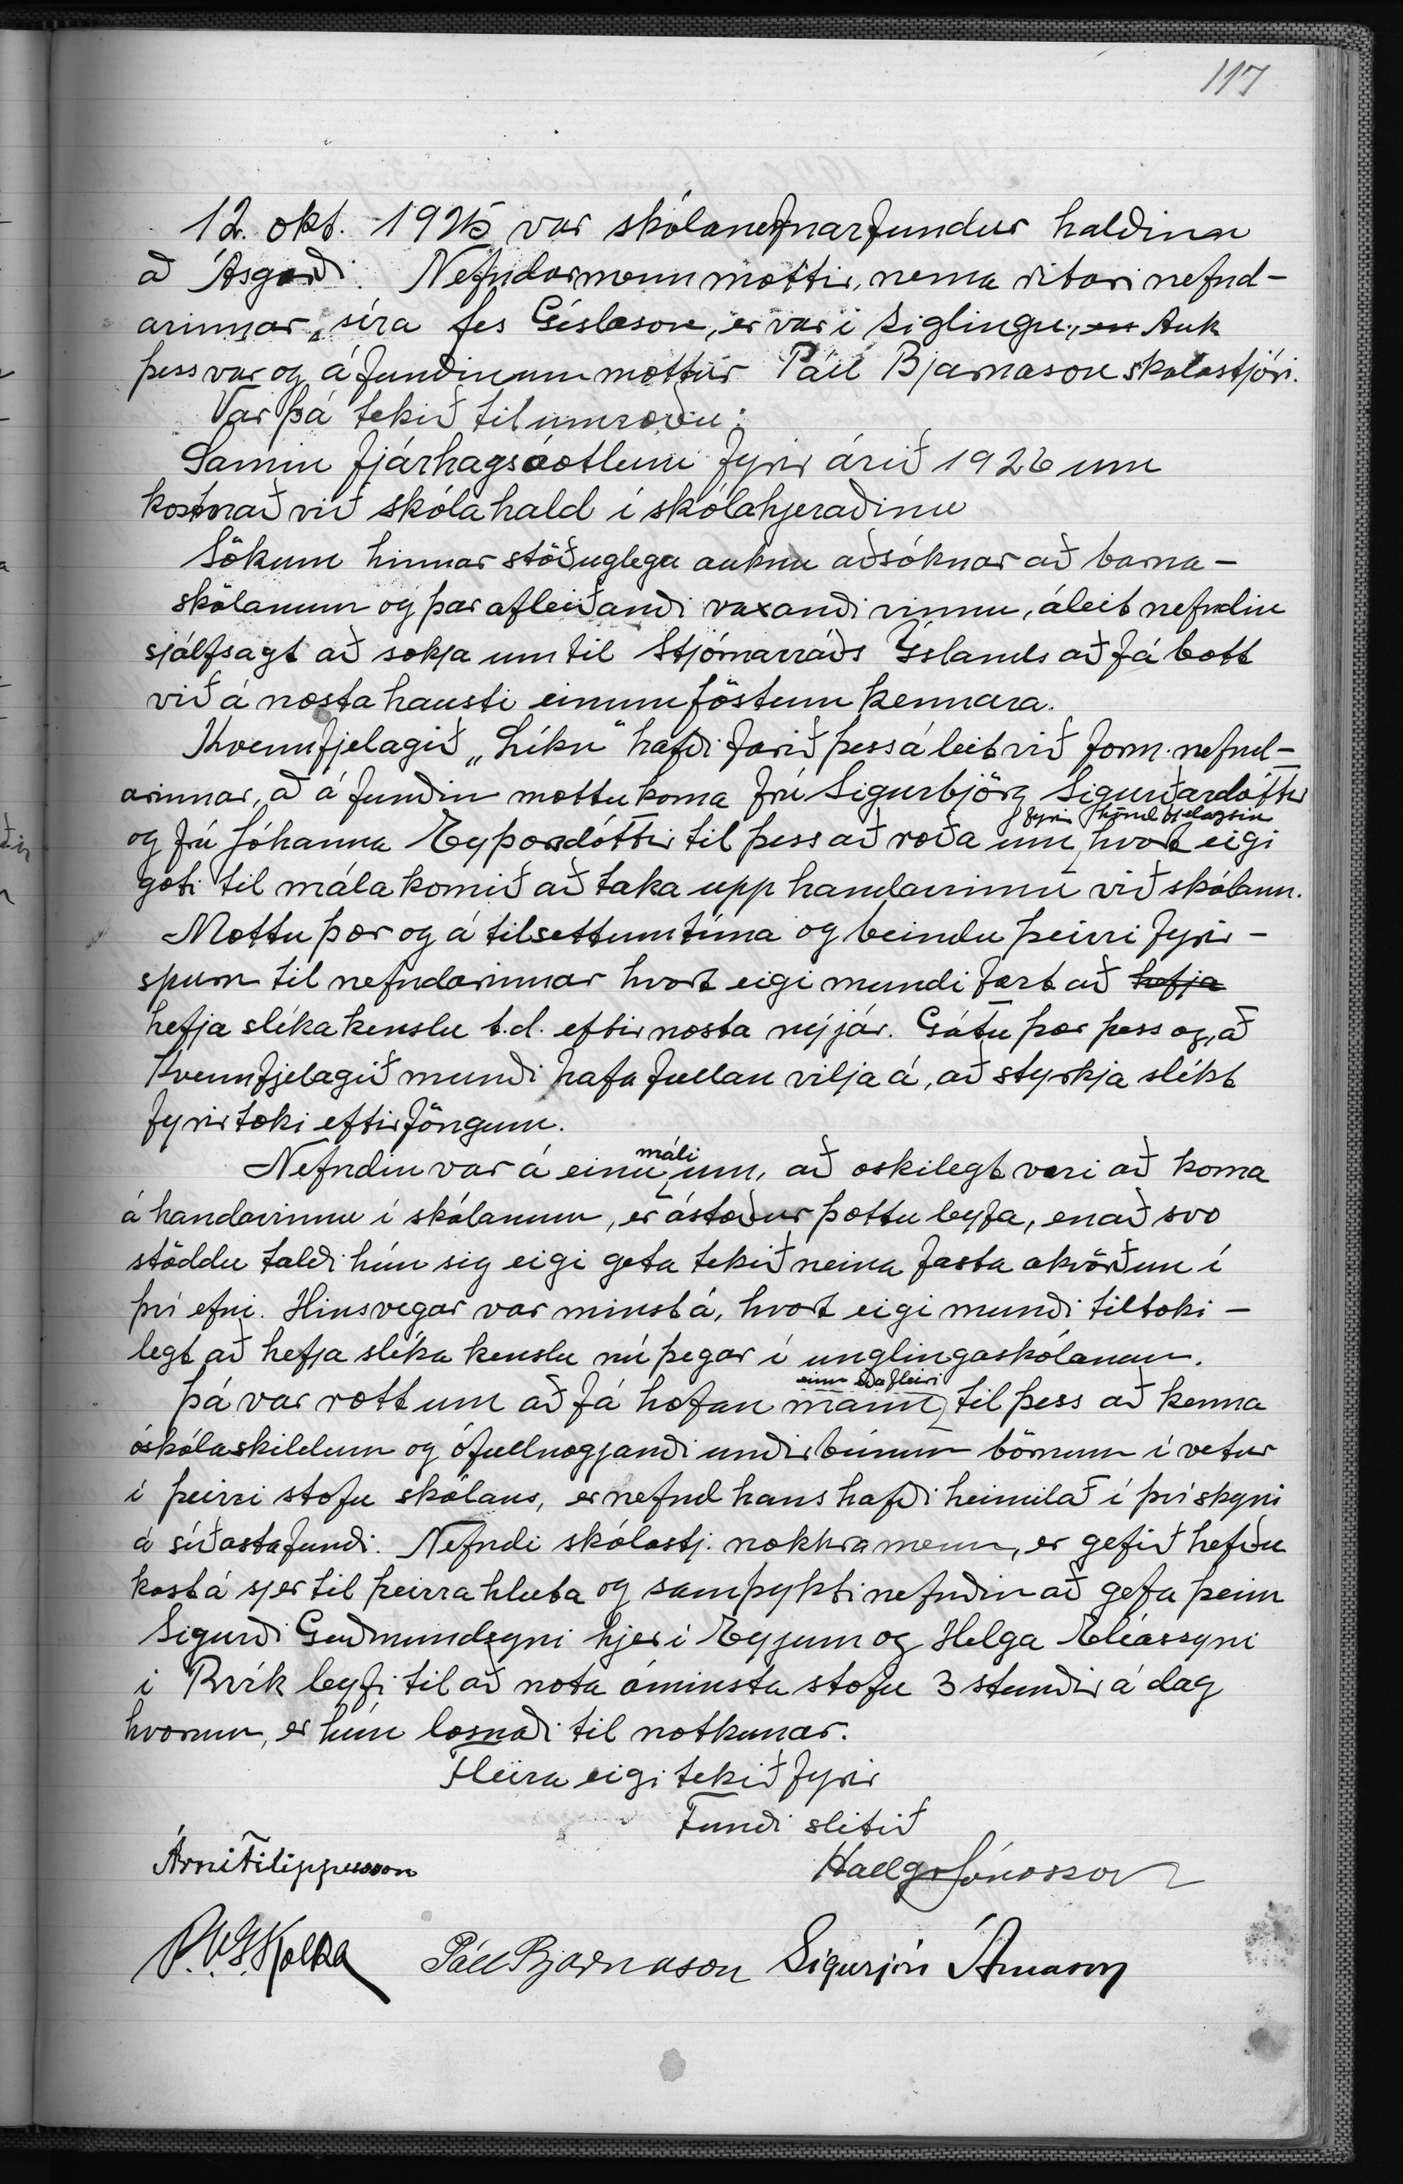 117
12. okt. 1925 var skólanefnarfundur haldinn
að Ásgarði. Nefndarmenn mættir, nema ritari nefnd-
arinnar, síra Jes Gíslason, er var í siglingu, en Auk
þess var og á fundinum mættur Páll Bjarnason skólastjóri.
Var þá tekið til umræðu:
Samin fjárhagsáætlun fyrir árið 1926 um
kostnað við skólahald í skólahjeraðinu
Sökum hinnar stöðuglega auknu aðsóknar að barna-
skólanum og þar afleiðandi vaxandi vinnu, áleit nefndin
sjálfsagt að sækja um til Stjórnarráðs Íslands að fá bætt
við á næsta hausti einum föstum kennara.
Kvennfjelagið „Líkn" hafði farið þess á leit við form. nefnd-
arinnar, að á fundin mættu koma frú Sigurbjörg Sigurðardóttir
og frú Jóhanna Eyþórsdóttir til þess að ræða um, fyrir hönd fjelagsin hvort eigi
gæti til mála komið að taka upp handavinnu við skólann.
Mættu þær og á tilsettum tíma og beindu þeirri fyrir-
spurn til nefndarinnar hvort eigi mundi fært að hefja
hefja slíka kenslu t.d. eftir næsta nýjár. Gátu þær þess og, að
Kvennfjelagið mundi hafa fullan vilja á, að styrkja slíkt
fyrirtæki eftir föngum.
Nefndin var á einu máli um, að æskilegt væri að koma
á handavinnu í skólanum, er ástæður þættu leyfa, en að svo
stöddu taldi hún sig eigi geta tekið neina fasta ákvörðun í
því efni. Hinsvegar var minst á, hvort eigi mundi tiltæki-
legt að hefja slíka kenslu nú þegar í unglingaskólanum.
Þá var rætt um að fá hæfan mann, einn eða fleiri til þess að kenna
óskólaskildum og ófullnægjandi undirbúnum börnum í vetur
í þeirri stofu skólans, er nefnd hans hafði heimilað í því skyni
á síðasta fundi. Nefndi skólastj. nokkra menn, er gefið hefðu
kost á sjer til þeirra hluta og samþykti nefndin að gefa þeim
Sigurði Guðmundssyni hjer í Eyjum og Helga Elíassyni
í Rvík leyfi til að nota óminstu stofu 3 stundir á dag
hvorum, er hún losnaði til notkunar.
Fleira eigi tekið fyrir
Fundi slitið
Árni Filippusson Hallgr Jónasson
P.V.G. Kolka Páll Bjarnason Sigurjón Árnason